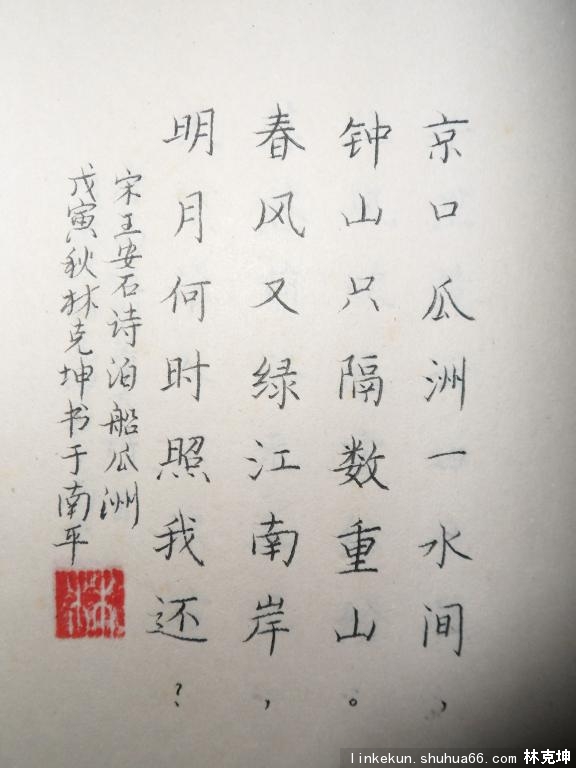 京口瓜洲一水间，
钟山只隔数重山。
春风又绿江南岸，
明月何时照我还？
宋王安石诗泊船瓜洲
戊寅秋林克坤书于南平
linkekun.shuhua66.com 林克坤